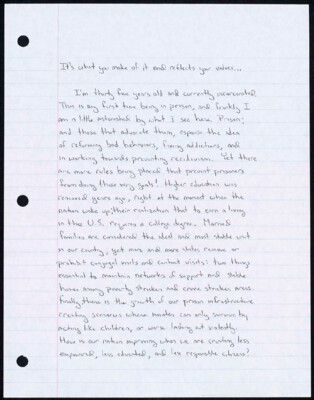 It's what you make of it and reflects your values...
I'm thirty five years old and currently incarcerated.
This is my first time being in prison, and frankly I
am a little astonished by what I see here. Prison,
and those that advocate them, espouse the idea
of reforming bad behaviors, fixing addictions, and
in working towards preventing recidivism. Yet there
are more rules being placed that prevent prisoners
from doing those very goals! Higher education was
removed years ago, right at the moment when the
nation woke up to their realization that to earn a living
in the U.S. requires a college degree. Married
families are considered the ideal and most stable unit
in our country, yet more and more states remove or
prohibit conjugal visits and contact visits: two things
essential to maintain networks of support and stable
homes among poverty stricken and crime stricken areas.
Finally there is the growth of our prison infrastructure
creating scenarios where inmates can only survive by
acting like children, or worse lashing out violently.
How is our nation improving when we are creating less
empowered, less educated, and less responsible citizens?